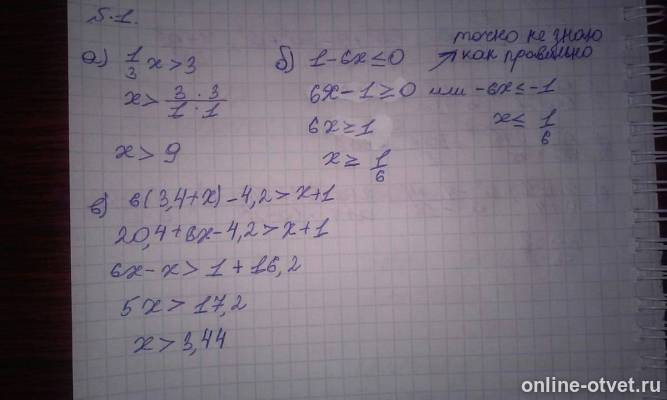 Б.1.
а) 1/3 x > 3
x > 3 · 3 / 1 · 1
x > 9
б) 1 - 6x ≤ 0
6x - 1 ≥ 0 или -6x ≤ -1
6x ≥ 1
x ≥ 1/6
x ≤ 1/6
точно не знаю
как правильно
в) 6(3,4+x) - 4,2 > x+1
20,4+6x-4,2 > x+1
6x - x > 1 + 16,2
5x > 17,2
x > 3,44
online-otvet.ru